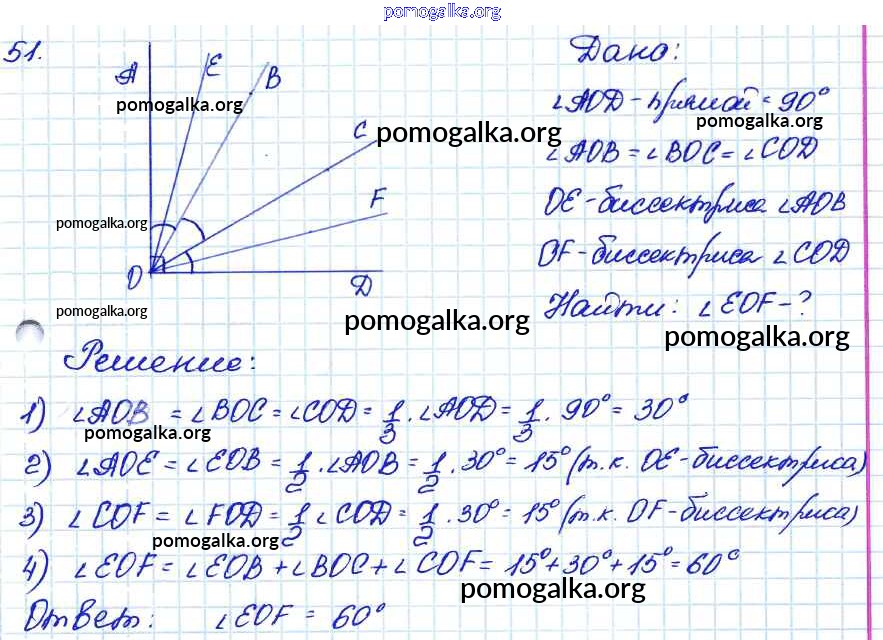 pomogalka.org
51.
A
E
B
C
F
O
D
pomogalka.org
pomogalka.org
pomogalka.org
pomogalka.org
pomogalka.org
Дано:
∠AOD - прямой = 90°
pomogalka.org
∠AOB = ∠BOC = ∠COD
OE - биссектриса ∠AOB
OF - биссектриса ∠COD
Найти: ∠EOF - ?
pomogalka.org
Решение:
1) ∠AOB = ∠BOC = ∠COD = 1/3 · ∠AOD = 1/3 · 90° = 30°
pomogalka.org
2) ∠AOE = ∠EOB = 1/2 · ∠AOB = 1/2 · 30° = 15° (т.к. OE - биссектриса)
3) ∠COF = ∠FOD = 1/2 ∠COD = 1/2 · 30° = 15° (т.к. OF - биссектриса)
pomogalka.org
4) ∠EOF = ∠EOB + ∠BOC + ∠COF = 15° + 30° + 15° = 60°
pomogalka.org
Ответ: ∠EOF = 60°